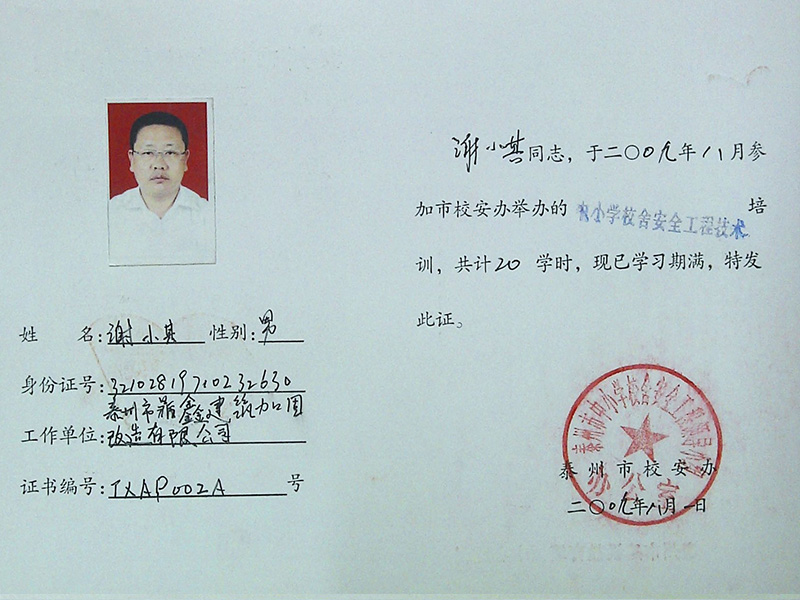 姓 名:谢小其 性别:男
身份证号:321028197102232630
泰州市 鑫建筑加固
工作单位:改造有限公司
证书编号:TXAP002A 号
谢小其同志，于二〇〇九年八月参
加市校安办举办的 中小学校舍安全工程技术 培
训，共计20学时，现已学习期满，特发
此证。
泰州市中小学校舍安全工程领导小组
泰州市校安办
办公室
二〇〇九年八月一日